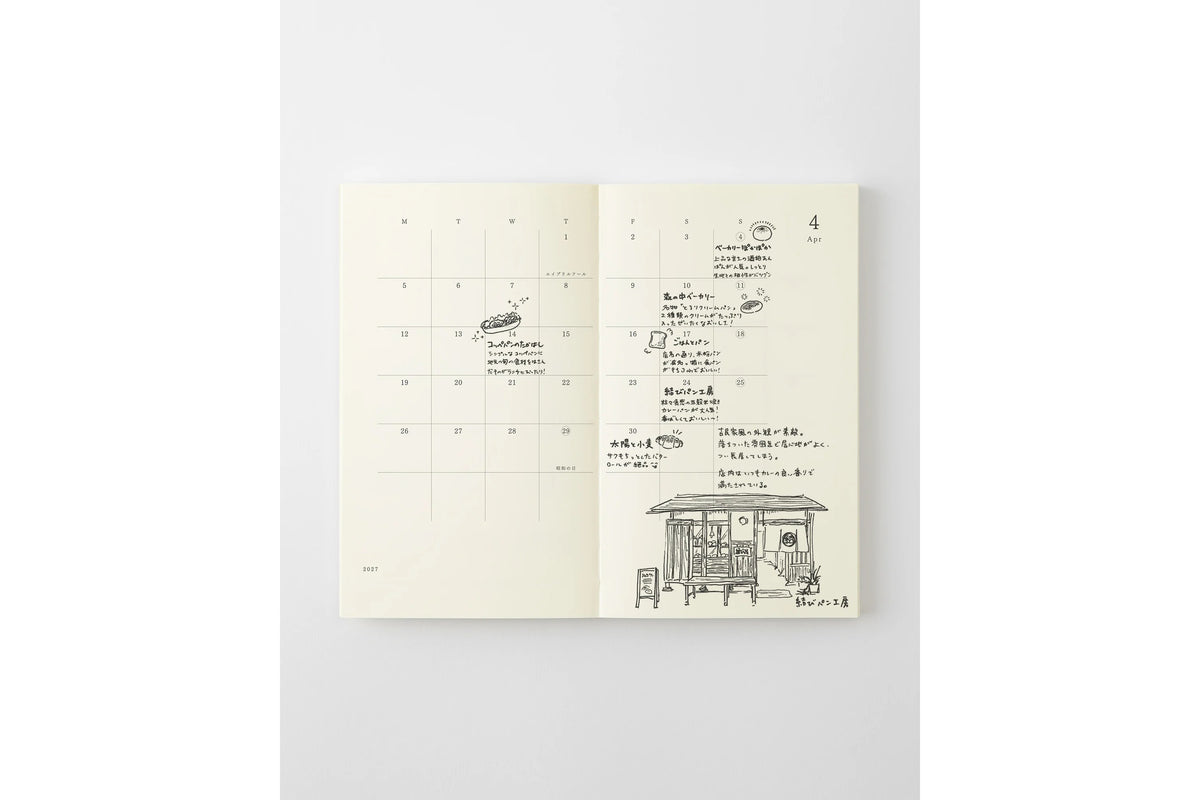 M T W T F S S
4
Apr
1 2 3 4
エイプリルフール
ベーカリーぽかぽか
上品な甘さの酒粕あん
ぱんが人気。しっとり
生地との相性がバツグン
5 6 7 8 9 10 11
森の中ベーカリー
名物"とろりクリームパン"
2種類のクリームがたっぷり
入ったぜいたくなおいしさ!
12 13 14 15 16 17 18
コッペパンのたかはし
シンプルなコッペパンに
地元の旬の食材をはさん
だものがランチにぴったり!
ごはんとパン
店名の通り、米粉パン
が有名。特に食パン
がもちふわでおいしい!
19 20 21 22 23 24 25
結びパン工房
カレーパンが大人気!
香ばしくておいしいっ!
26 27 28 29 30
昭和の日
太陽と小麦
サクもちっとしたバター
ロールが絶品
古民家風の外観が素敵。
落ちついた雰囲気で居心地がよく、
つい長居してしまう。
店内はいつもカレーの良い香りで
満たされている。
2027
結びパン工房